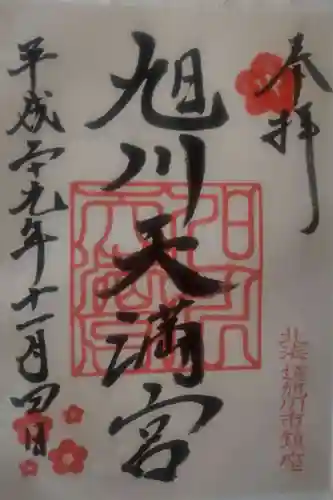 奉拝
旭川天満宮
平成二十九年十一月四日
北海道旭川市鎮座